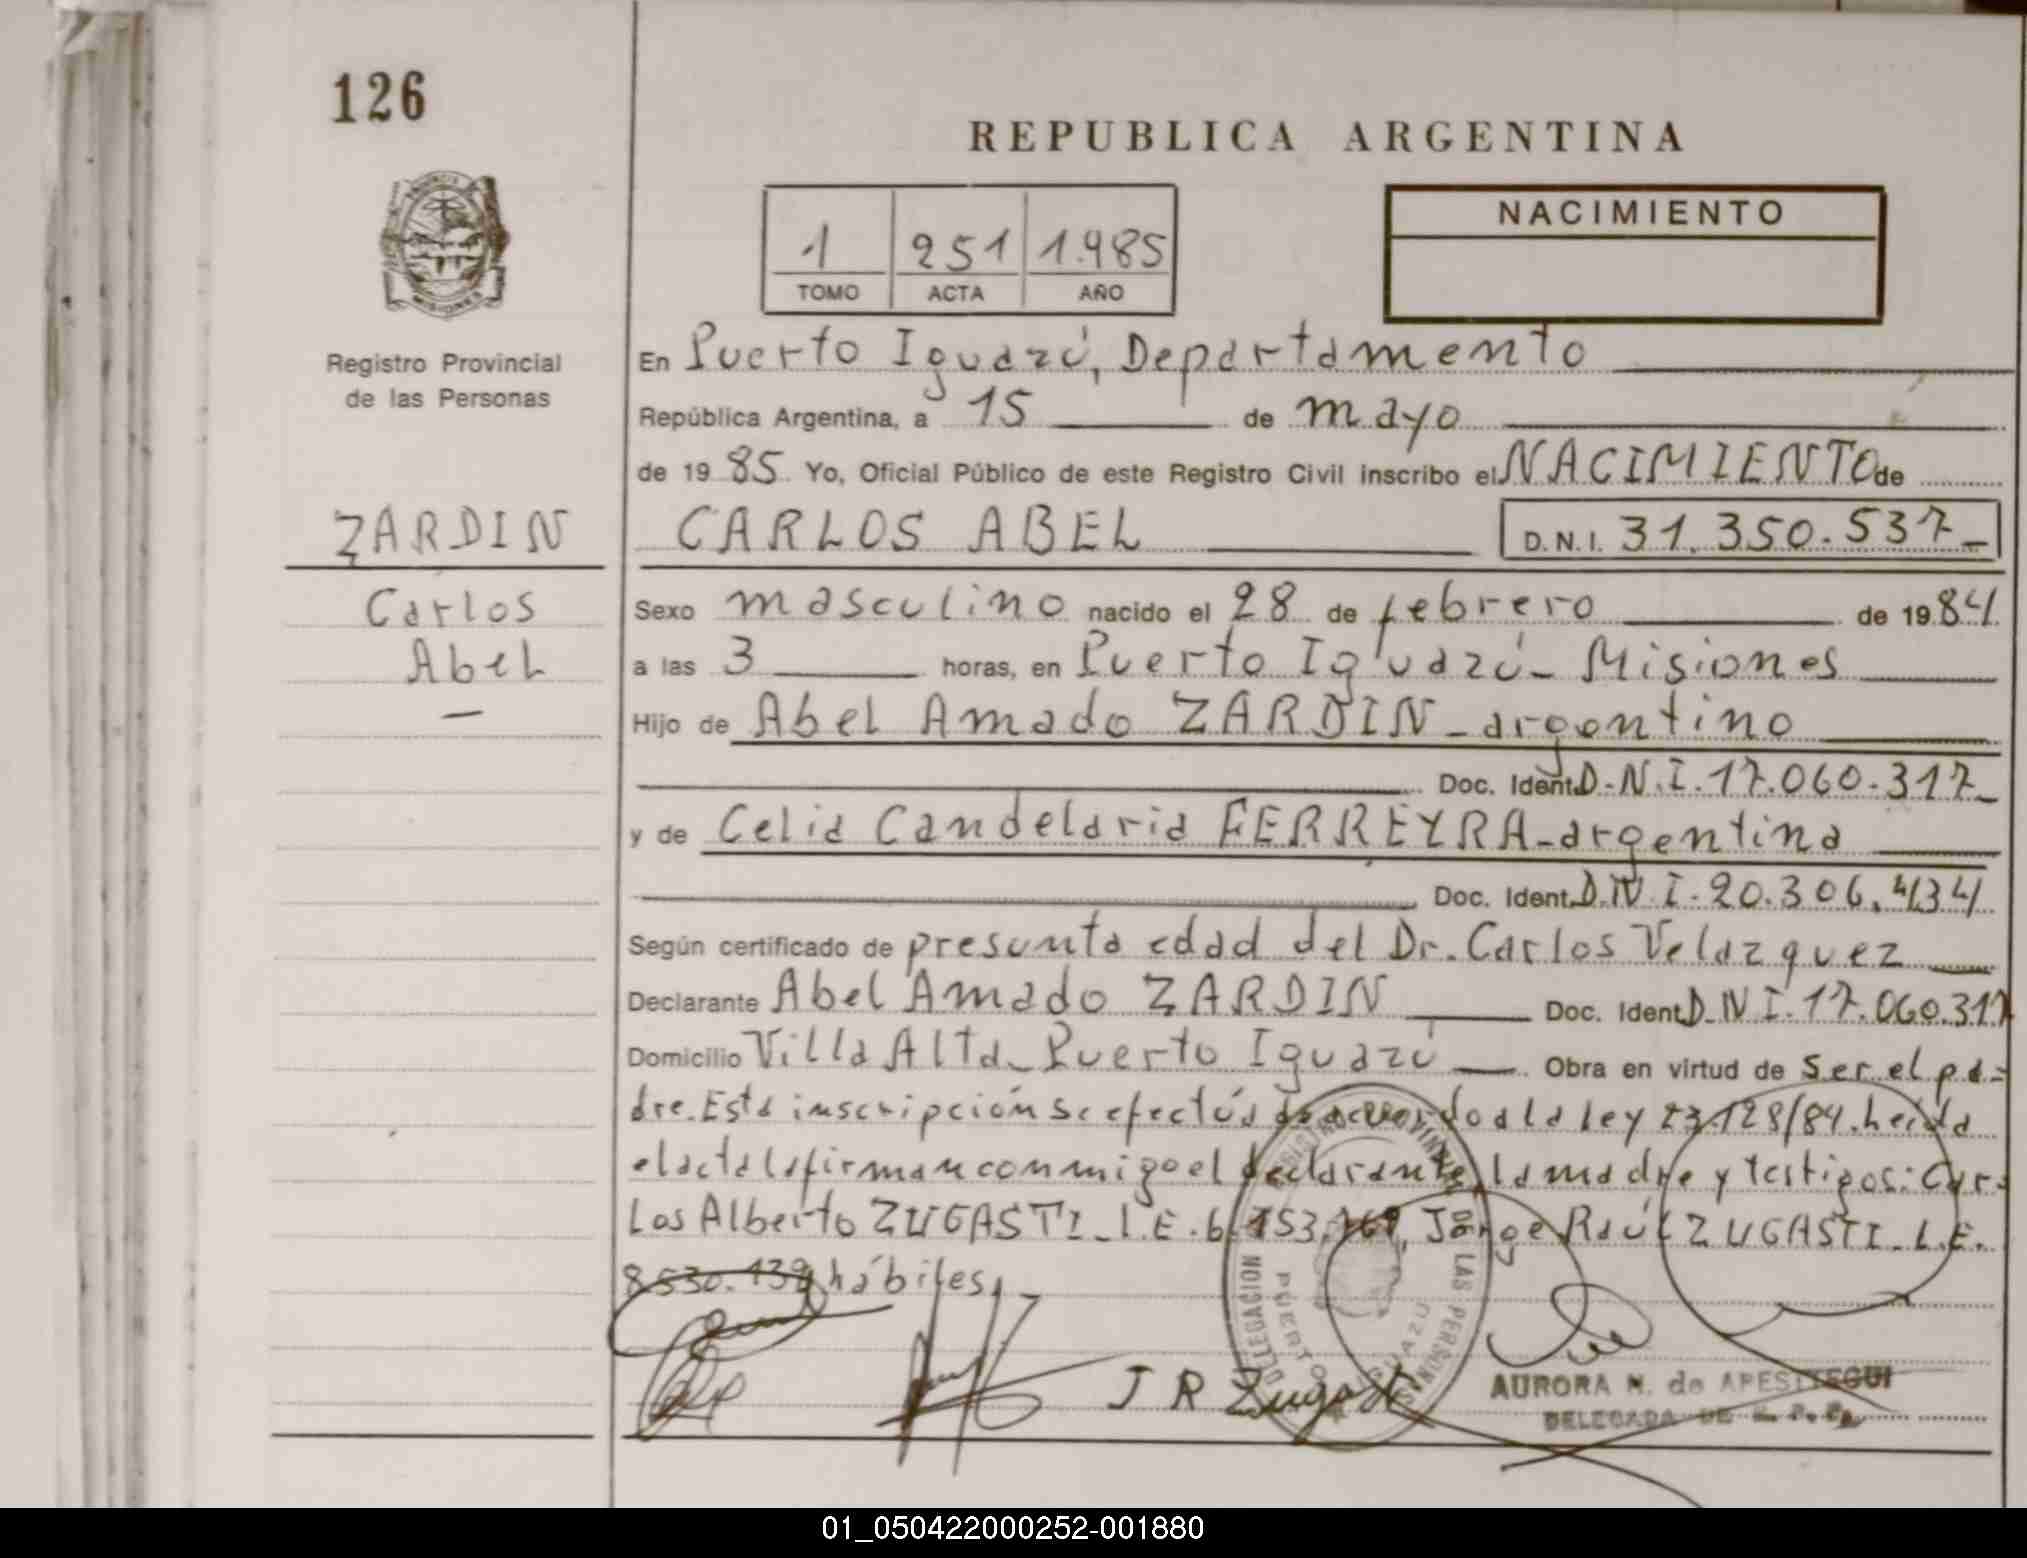 126
REPUBLICA ARGENTINA
NACIMIENTO
1 251 1.985
TOMO ACTA AÑO
Registro Provincial
de las Personas
En Puerto Iguazú, Departamento
República Argentina, a 15 de mayo
de 19 85. Yo, Oficial Público de este Registro Civil inscribo el NACIMIENTO de
ZARDIN
CARLOS ABEL D.N.I. 31.350.537_
Carlos
Abel
—
Sexo masculino nacido el 28 de febrero de 19 84
a las 3 horas, en Puerto Iguazú_ Misiones
Hijo de Abel Amado ZARDIN _ argentino
Doc. Ident. D.N.I. 17.060.317_
y de Celia Candelaria FERREYRA_argentina
Doc. Ident. D.N.I. 20.306.434
Según certificado de presunta edad del Dr. Carlos Velazquez
Declarante Abel Amado ZARDIN Doc. Ident. D.N.I. 17.060.317
Domicilio Villa Alta_ Puerto Iguazú Obra en virtud de ser el pa=
dre. Esta inscripción se efectúa de acuerdo a la ley 23.128/84. Leída
el acta la firman conmigo el declarante, la madre y testigos: Car=
los Alberto ZUGASTI_ L.E. 6.153.169, Jorge Raúl ZUGASTI_ L.E.
8.530.139 hábiles._
J R Zugasti
REGISTRO PROVINCIAL DE LAS PERSONAS
DELEGACION
PUERTO IGUAZU
AURORA N. de APESTEGUI
DELEGADA DE R. P. P.
01_050422000252-001880